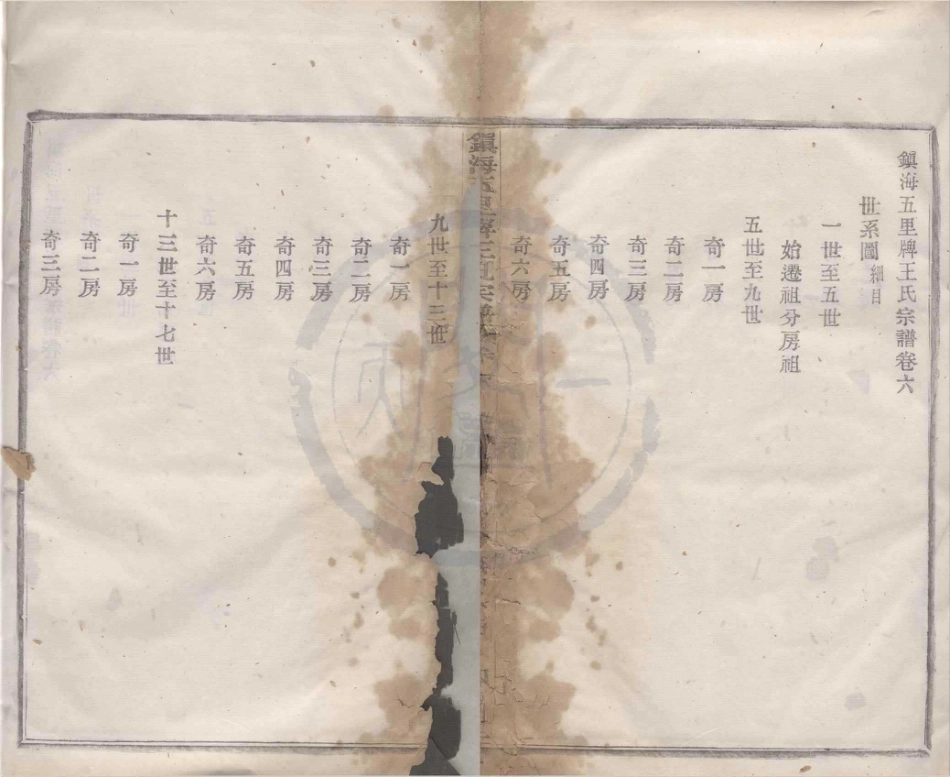 鎮海五里牌王氏宗譜卷六
世系圖細目
一世至五世
始遷祖分房祖
五世至九世
奇一房
奇二房
奇三房
奇四房
奇五房
奇六房
鎮海五里牌王氏宗譜
九世至十三世
奇一房
奇二房
奇三房
奇四房
奇五房
奇六房
十三世至十七世
奇一房
奇二房
奇三房